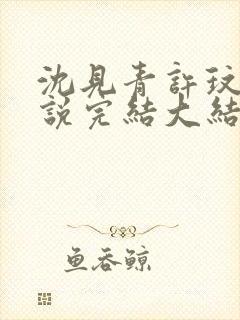 沈見青許玟
說完結大結
鱼吞鲸